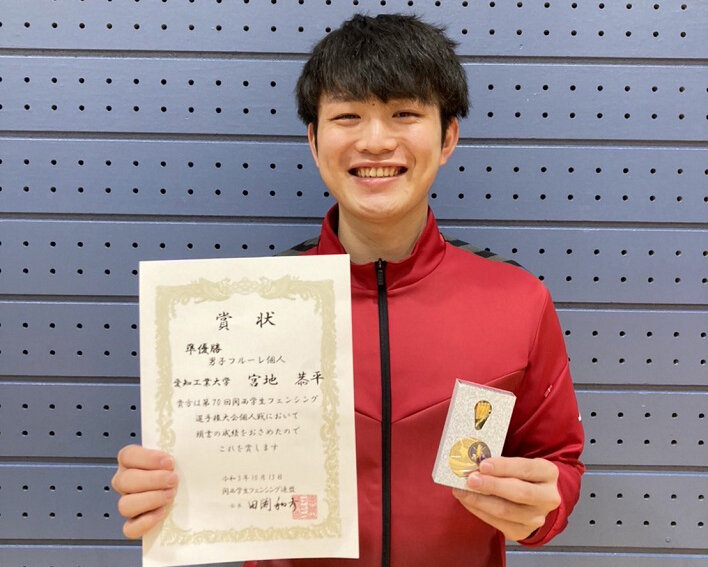 賞状
準優勝
男子フルーレ個人
愛知工業大学 宮地 恭平
貴方は第70回関西学生フェンシング
選手権大会個人戦において
頭書の成績をおさめたので
これを賞します
令和3年10月13日
関西学生フェンシング連盟
会長